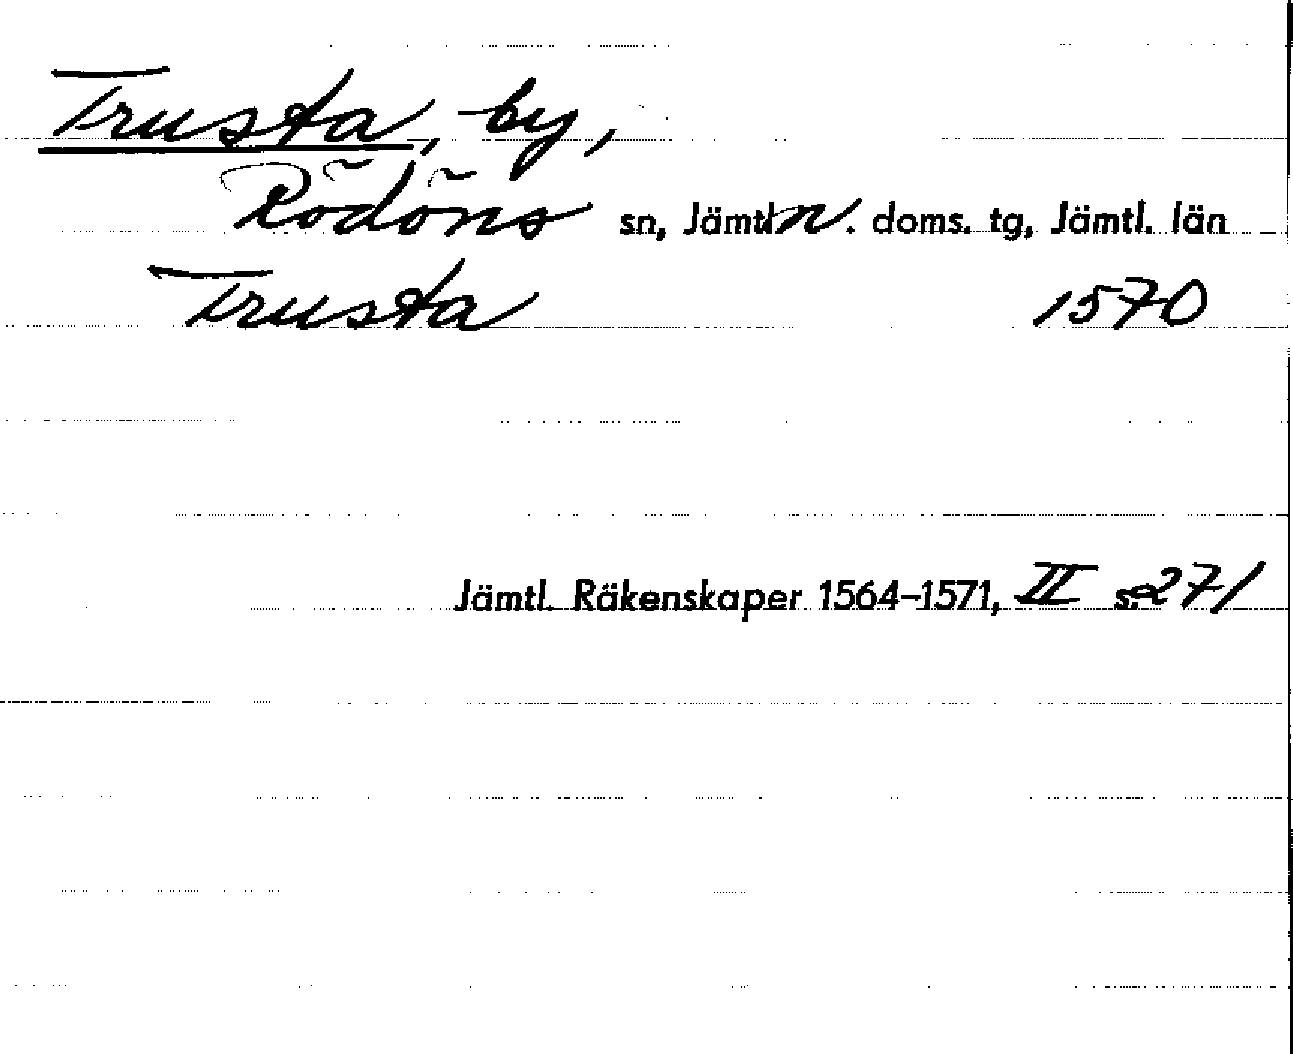 Trusta, by,
Rödöns sn, Jämtl. n. doms. tg, Jämtl. län
Trusta 1570
Jämtl. Räkenskaper 1564–1571, II s. 271